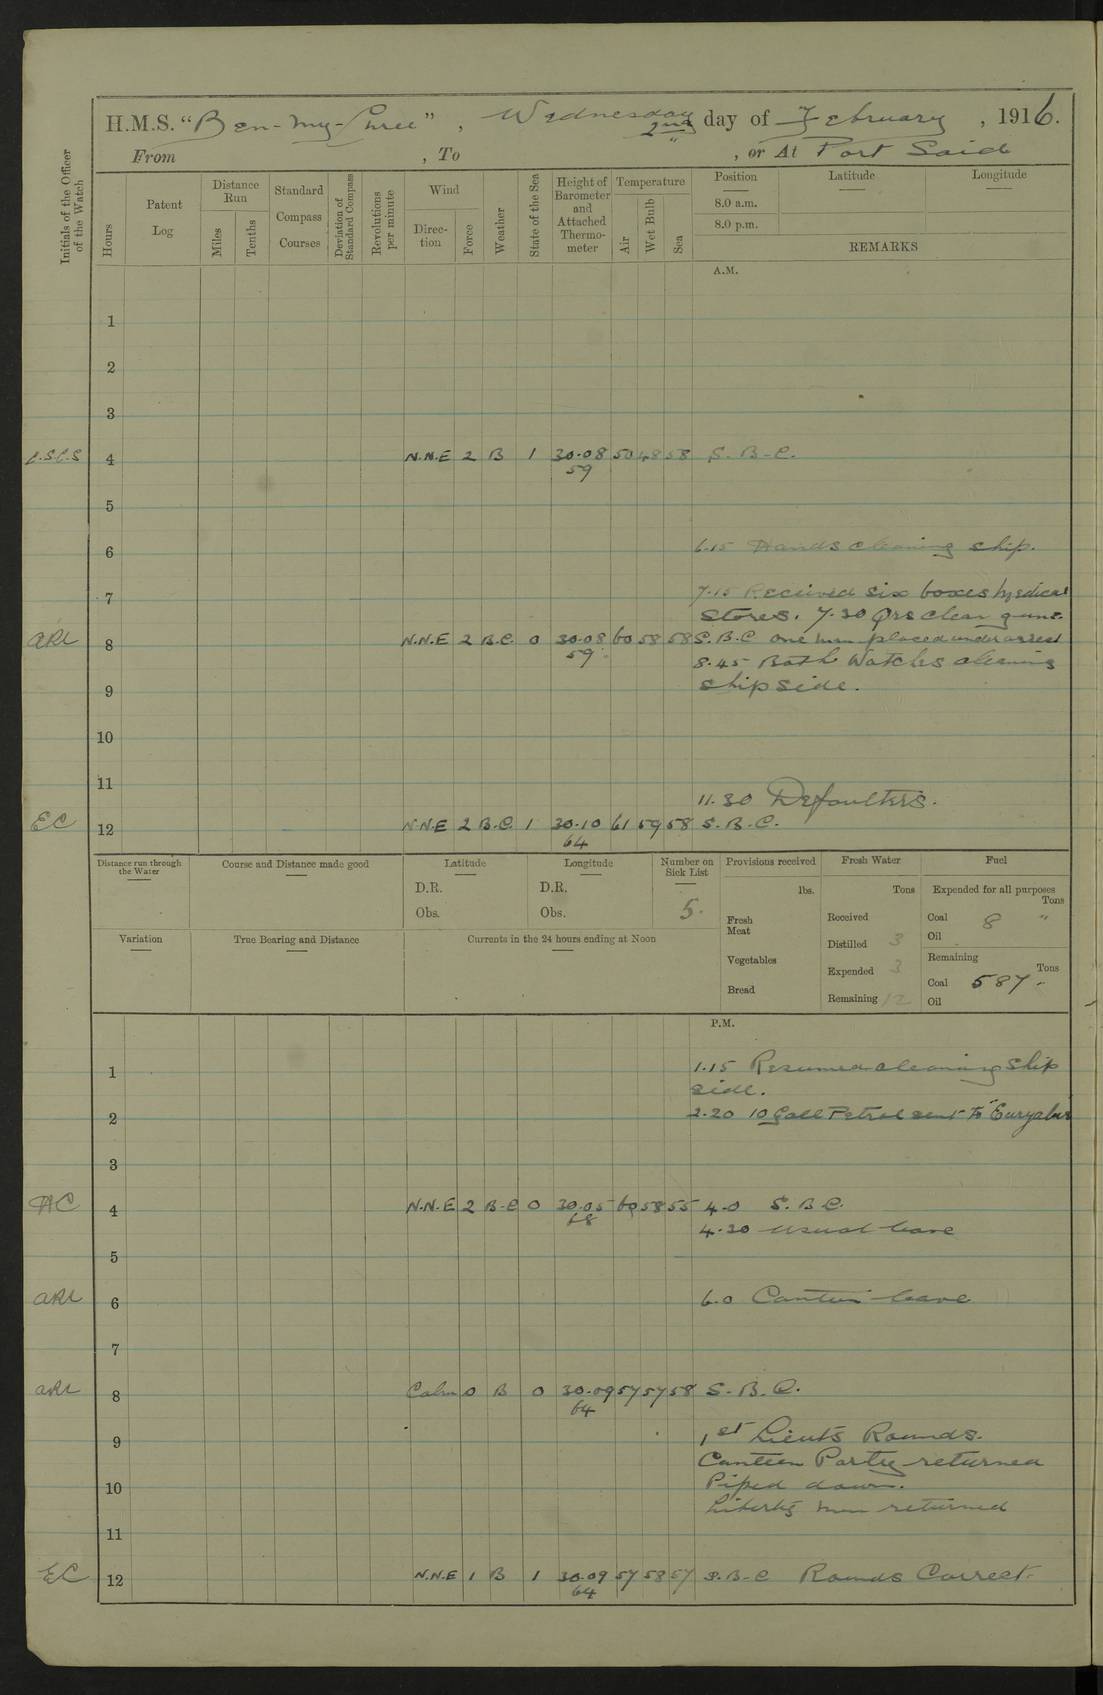 H.M.S. "Ben-my-Chree", Wednesday 2nd day of February, 1916.
From , To , or At Port Said
Initials of the Officer of the Watch
Hours
Patent Log
Distance Run
Miles
Tenths
Standard Compass Courses
Deviation of Standard Compass
Revolutions per minute
Wind
Direction
Force
Weather
State of the Sea
Height of Barometer and Attached Thermometer
Temperature
Air
Wet Bulb
Sea
Position
8.0 a.m.
8.0 p.m.
Latitude
Longitude
REMARKS
A.M.
1
2
3
C.S.C.S 4 N.N.E 2 B 1 30.08 50 48 58 S. B-C.
59
5
6 6.15 Hands cleaning ship.
7 7.15 Received six boxes Medical
stores. 7.30 Qrs clean guns.
ARL 8 N.N.E 2 B.C. 0 30.08 60 58 58 S.B.C one man placed under arrest
59
8.45 Both Watches cleaning
9 ship side.
10
11
11.30 Defaulters.
EC 12 N.N.E 2 B.C. 1 30.10 61 59 58 S.B.C.
64
Distance run through the Water
Course and Distance made good
Latitude
D.R.
Obs.
Longitude
D.R.
Obs.
Number on Sick List
5.
Variation
True Bearing and Distance
Currents in the 24 hours ending at Noon
Provisions received
lbs.
Fresh Meat
Vegetables
Bread
Fresh Water
Tons
Received
Distilled 3
Expended 3
Remaining 12
Fuel
Expended for all purposes
Tons
Coal 8 "
Oil
Remaining
Tons
Coal 587 -
Oil
P.M.
1 1.15 Resumed cleaning ship
side.
2 2.20 10 Gall Petrol sent to "Euryalus"
3
HC 4 N.N.E 2 B-C 0 30.05 60 58 55 4.0 S. B C.
68
4.30 usual leave
5
ARL 6 6.0 Canteen leave
7
ARL 8 Calm 0 B 0 30.09 57 57 58 S.B.C.
64
9 1st Lieuts Rounds.
Canteen Party returned
10 Piped down.
Liberty men returned
11
EC 12 N.N.E 1 B 1 30.09 57 58 57 S.B-C Rounds Correct.
64